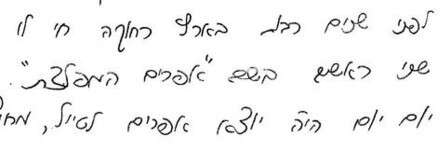 לפני שנים רבות בארץ רחוקה חי לו
שני בשם "אפרים המפלצת".
יום יום היה יוצא אפרים לטייל,